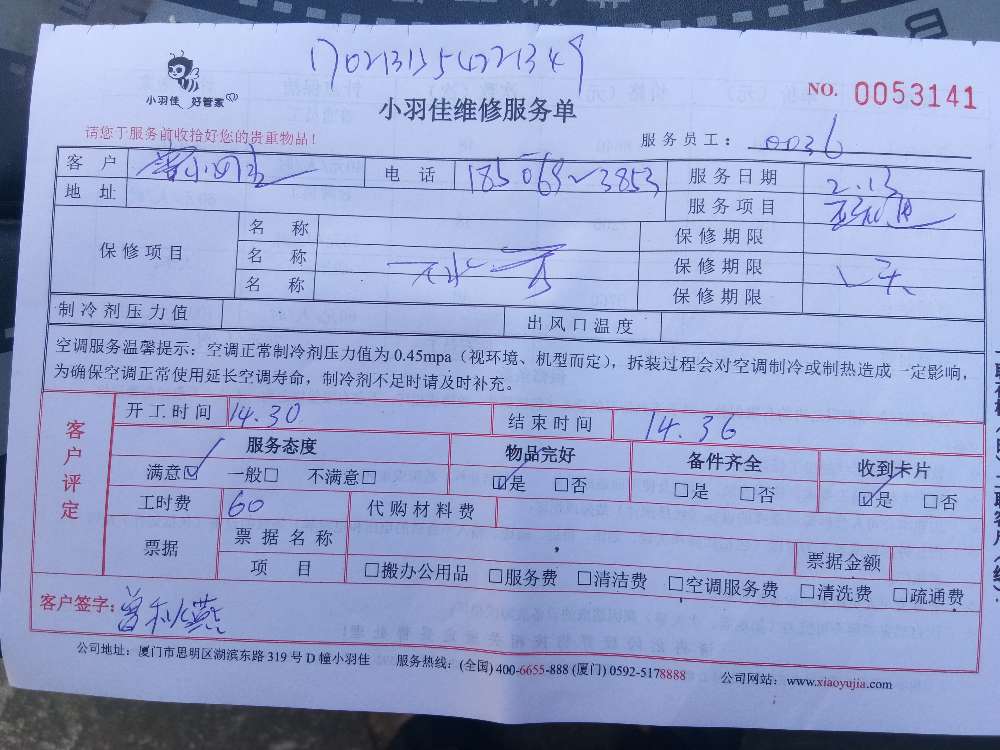 小羽佳 好管家
小羽佳维修服务单
NO. 0053141
请您于服务前收拾好您的贵重物品！
服务员工： 0036
客 户
电 话
服务日期 2.13
地 址
服务项目
保修项目
名 称
保修期限
名 称
保修期限
名 称
保修期限
制冷剂压力值
出风口温度
空调服务温馨提示：空调正常制冷剂压力值为 0.45mpa（视环境、机型而定），拆装过程会对空调制冷或制热造成一定影响，
为确保空调正常使用延长空调寿命，制冷剂不足时请及时补充。
客户评定
开工时间 14.30
结束时间 14.36
服务态度
物品完好
备件齐全
收到卡片
满意☑ 一般□ 不满意□
☑是 □否
□是 □否
☑是 □否
工时费 60
代购材料费
票据
票据名称
票据金额
项 目
□搬办公用品 □服务费 □清洁费 □空调服务费 □清洗费 □疏通费
客户签字：
公司地址：厦门市思明区湖滨东路 319 号 D 幢小羽佳 服务热线：(全国) 400-6655-888 (厦门) 0592-5178888 公司网站：www.xiaoyujia.com